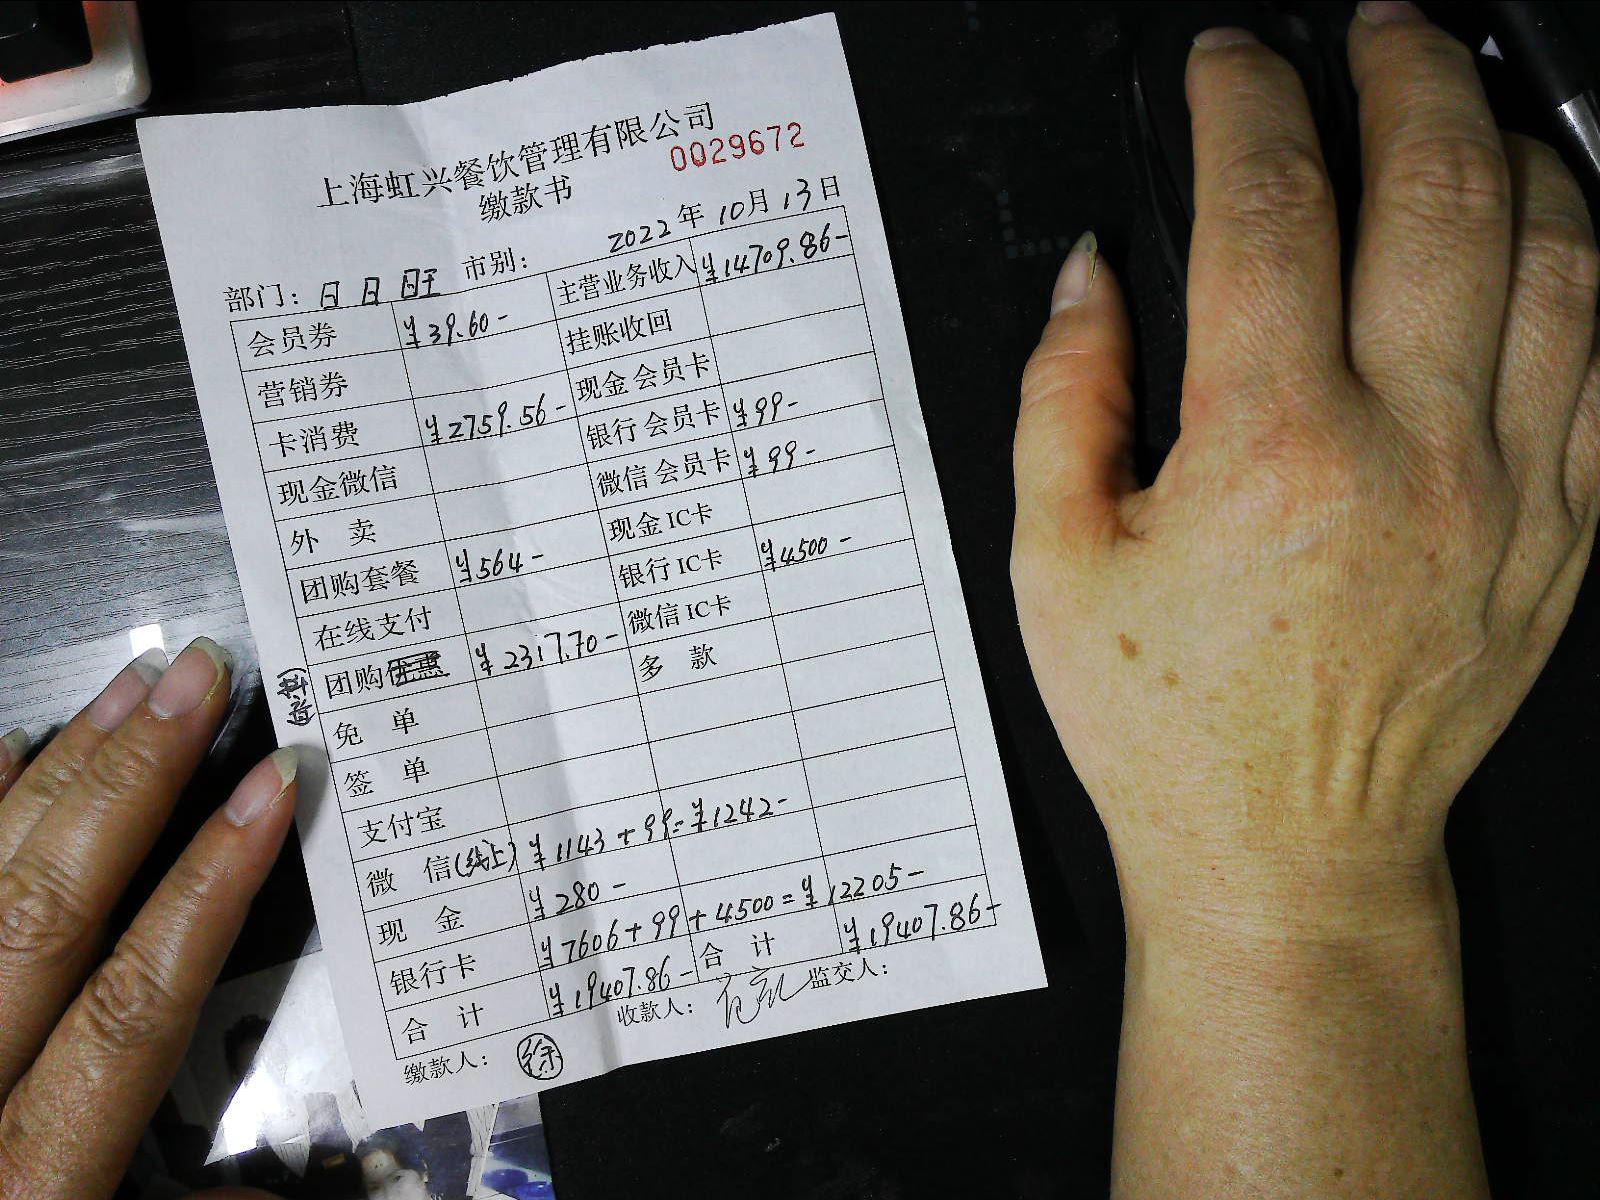 上海虹兴餐饮管理有限公司
0029672
缴款书
2022年10月13日
部门：日日旺 市别：
会员券 ¥39.60- 主营业务收入 ¥14709.86-
营销券 挂账收回
卡消费 ¥2759.56- 现金会员卡
现金微信 银行会员卡 ¥99-
外 卖 微信会员卡 ¥99-
团购套餐 ¥564- 现金IC卡
在线支付 银行IC卡 ¥4500-
团购 ¥2317.70- 微信IC卡
(抖音)
免 单 多 款
签 单
支付宝
微 信(线上) ¥1143+99=¥1242-
现 金 ¥280-
银行卡 ¥7606+99+4500=¥12205-
合 计 ¥19407.86- 合 计 ¥19407.86-
缴款人：徐 收款人： 监交人：